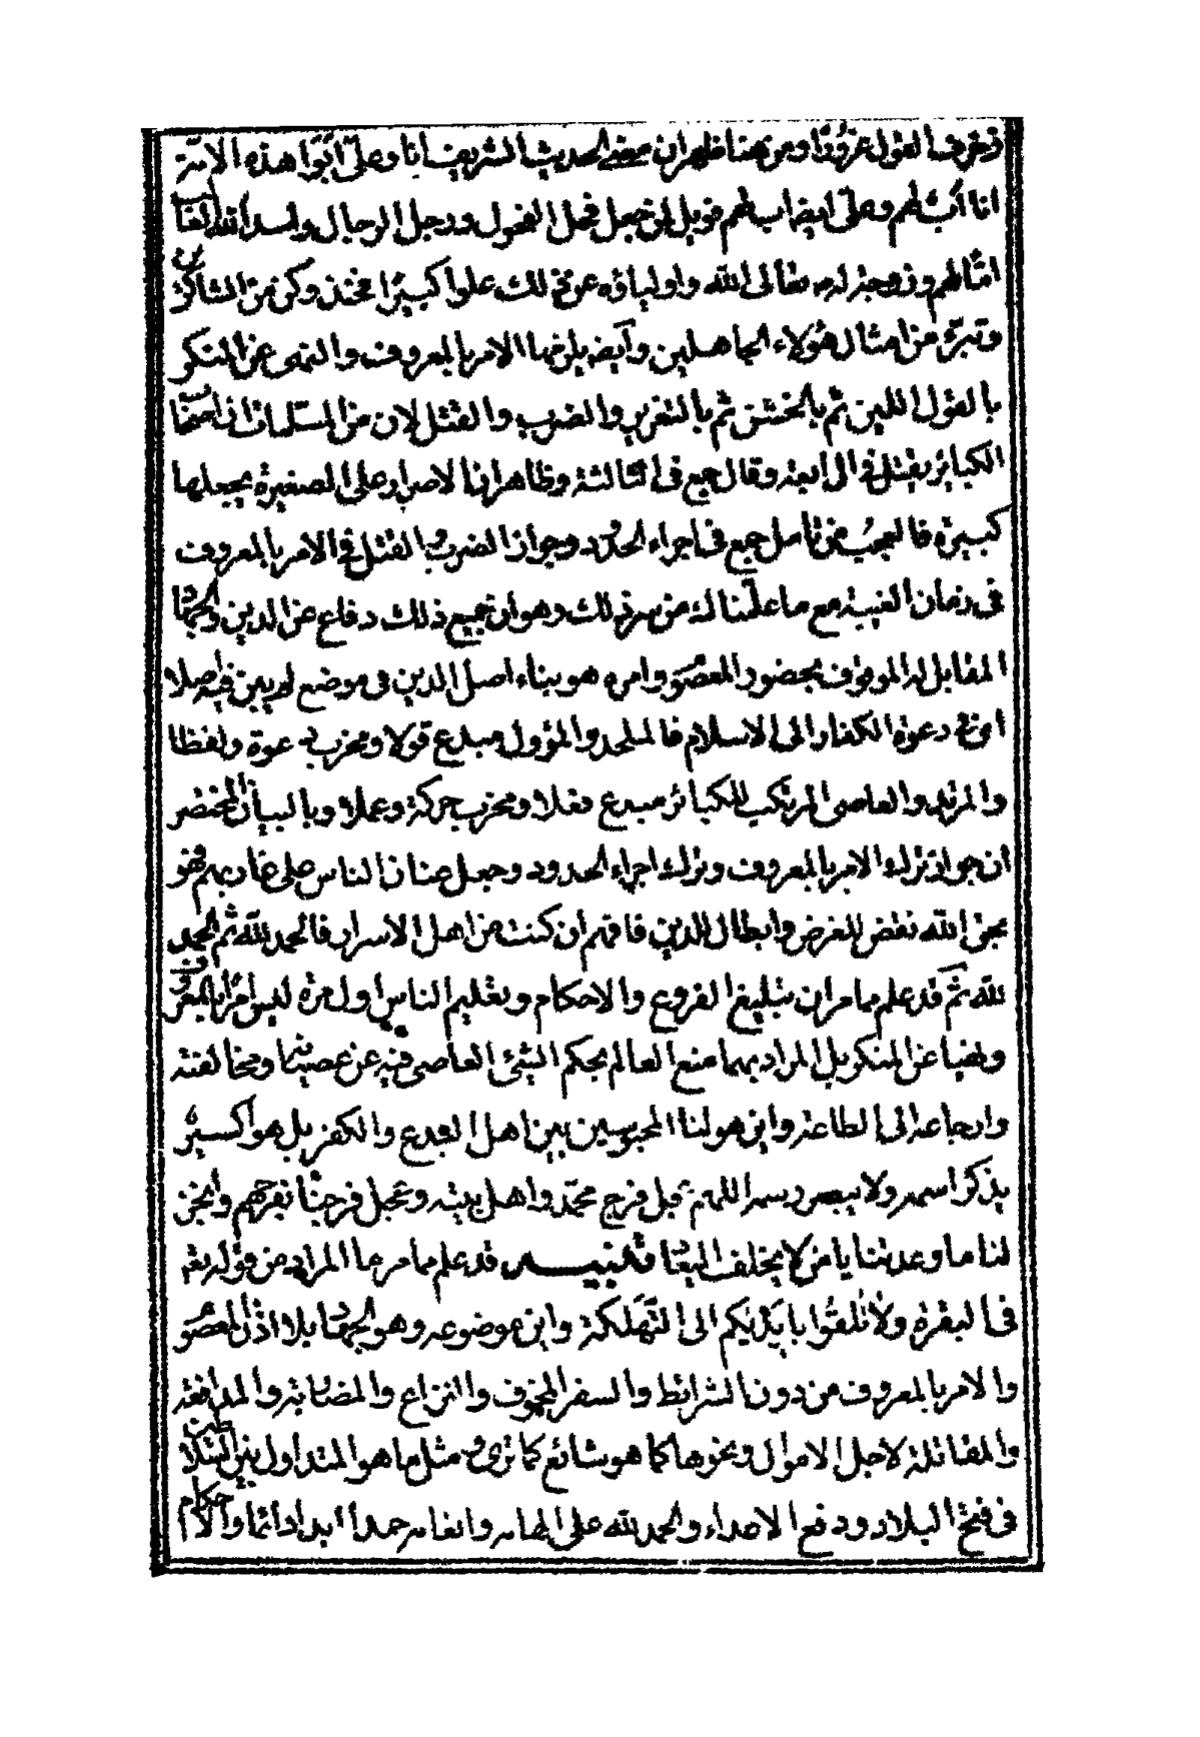 زخرف القول غرورا ومن هنا ظهر ان معنى الحديث الشريف انا وعلى ابوا هذه الامة
انا اب لهم وعلى ايضا اب لهم فويل لمن جعل فحل الفحول ورجل الرجال واسد الله الغالب
امّا لهم وزوجة له تعالى الله واولياؤه عن ذلك علوا كبيرًا فخذ وكن من الشاكرين
وتبرّء من امثال هؤلاء الجاهلين وايضا يلزمها الامر بالمعروف والنهى عن المنكر
بالقول اللين ثم بالخشن ثم بالتعزير والضرب والقتل لان من المسلمات ان اصحاب
الكبائر يقتل فى الرابعة وقال جمع فى الثالثة وظاهر ان الاصرار على الصغيرة يجعلها
كبيرة فالعجب من تامل جمع فى اجراء الحدود وجواز الضرب والقتل فى الامر بالمعروف
فى زمان الغيبة مع ما علمنا لك من سر ذلك وهو ان جميع ذلك دفاع عن الدين والجهاد
المقابل له الموقوف بحضور المعصوم وامره هو بناء اصل الدين فى موضع لم يبين فيه اصلا
اعنى دعوة الكفار الى الاسلام فالملحد والمؤول مبدع قولا ومخرب دعوة ولفظا
والمرتد والعاصى المرتكب للكبائر مبدع فعلا ومخرب حركة وعملا وبالبيان المختصر
ان جواز ترك الامر بالمعروف وترك اجراء الحدود وجعل عنان الناس على غاربهم فهو
بحق الله نقض للغرض وابطال للدين فافهم ان كنت من اهل الاسرار فالحمد لله ثم الحمد
لله ثم قد علم مما مر ان تبليغ الفروع والاحكام وتعليم الناس اول مرة ليس امرًا بالمعروف
ونهيا عن المنكر بل المراد بهما منع العالم بحكم الشئ العاصى فيه عن عصيانه ومخالفته
وارجاعه الى الطاعة واين هو لنا المحبوسين بين اهل البدع والكفر بل هو اكسير
يذكر اسمه ولا يبصر رسمه اللهم عجل فرج محمد واهل بيته وعجل فرجنا بفرجهم وانجز
لنا ما وعدتنا يا من لا يخلف الميعاد تنبيه قد علم مما مر ما المراد من قوله تعالى
فى البقرة ولا تلقوا بايديكم الى التهلكة واين موضوعه وهو الجهاد بلا اذن المعصوم
والامر بالمعروف من دون الشرائط والسفر المخوف والنزاع والمضاربة والمدافعة
والمقاتلة لاجل الاموال ونحوها كما هو شائع كما ترى ومثل ما هو المتداول بين السلاطين
فى فتح البلاد ودفع الاعداء والحمد لله على الهامه وانعامه حمدا ابدا دائما والاحكام